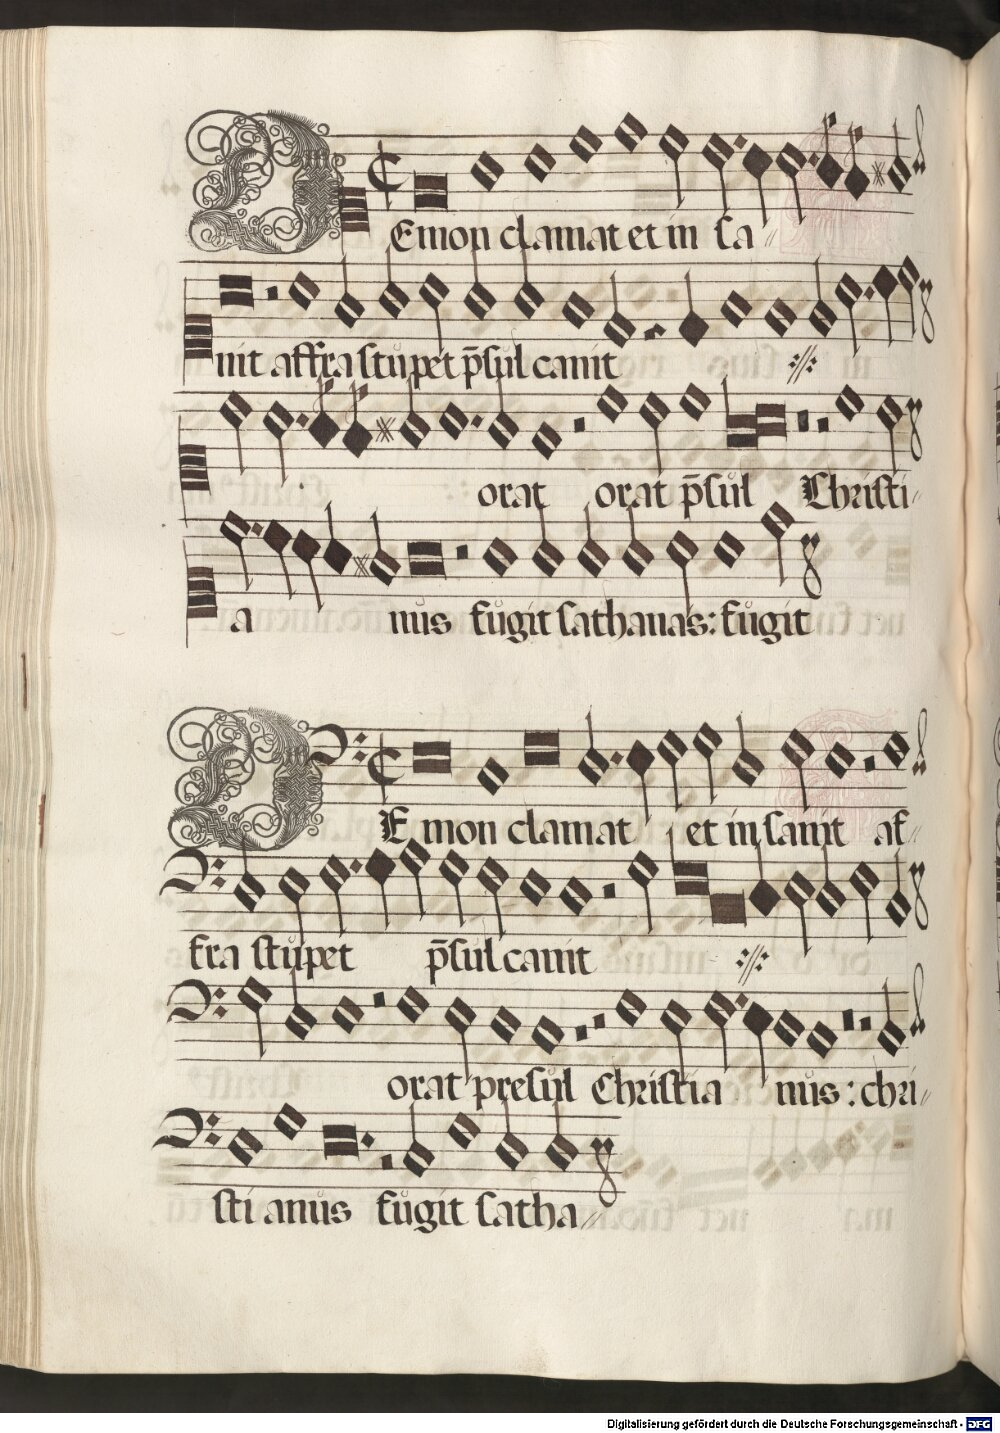 DEmon clamat et in sa//
nit affra stupet p̄sul canit ://:
orat orat p̄sul Christi//
a nus fugit sathanas: fugit
DEmon clamat et in sanit af//
fra stupet p̄sul canit ://:
orat presul Christia nus: chri//
sti anus fugit satha//
Digitalisierung gefördert durch die Deutsche Forschungsgemeinschaft - DFG